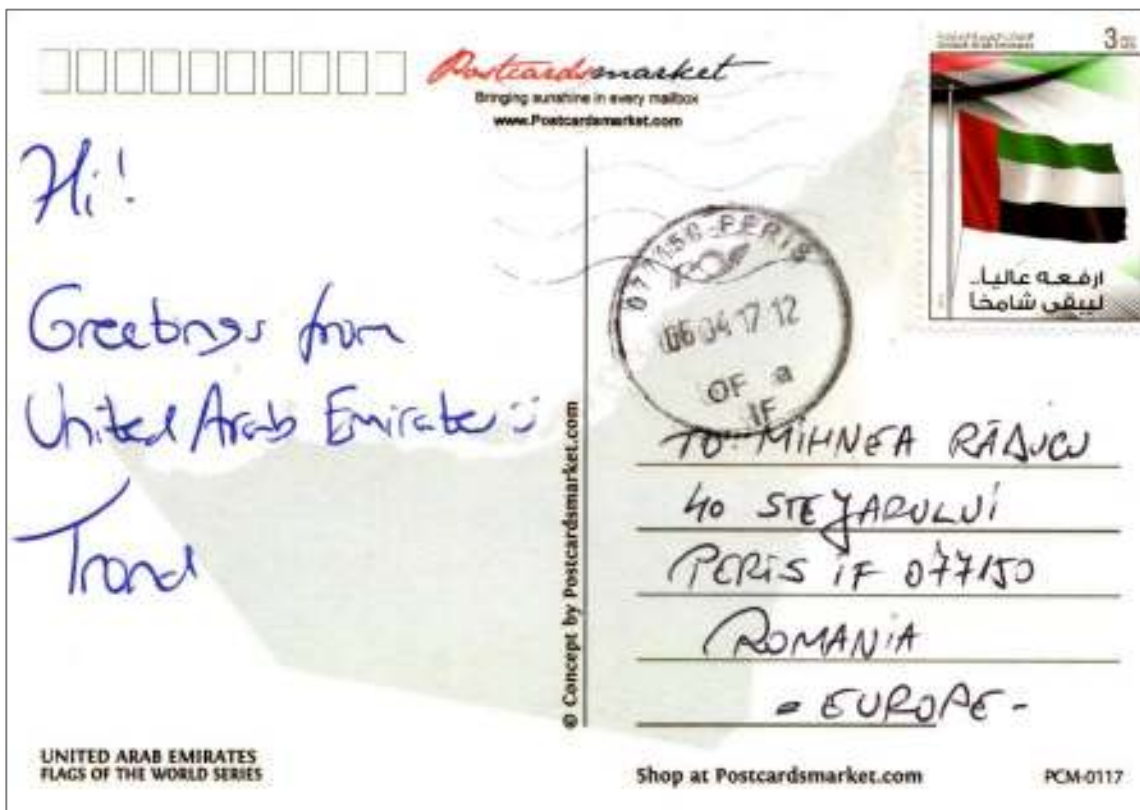 Postcardsmarket
Bringing sunshine in every mailbox
www.Postcardsmarket.com
3
UNITED ARAB EMIRATES
ارفعه عالياً..
ليبقى شامخاً
077150-PERIS
06 04 17-12
OF a
IF
Hi!
Greetings from
United Arab Emirates
Trond
© Concept by Postcardsmarket.com
TO: MIHNEA RĂDUCU
40 STEJARULUI
PERIS IF 077150
ROMANIA
- EUROPE -
UNITED ARAB EMIRATES
FLAGS OF THE WORLD SERIES
Shop at Postcardsmarket.com
PCM-0117